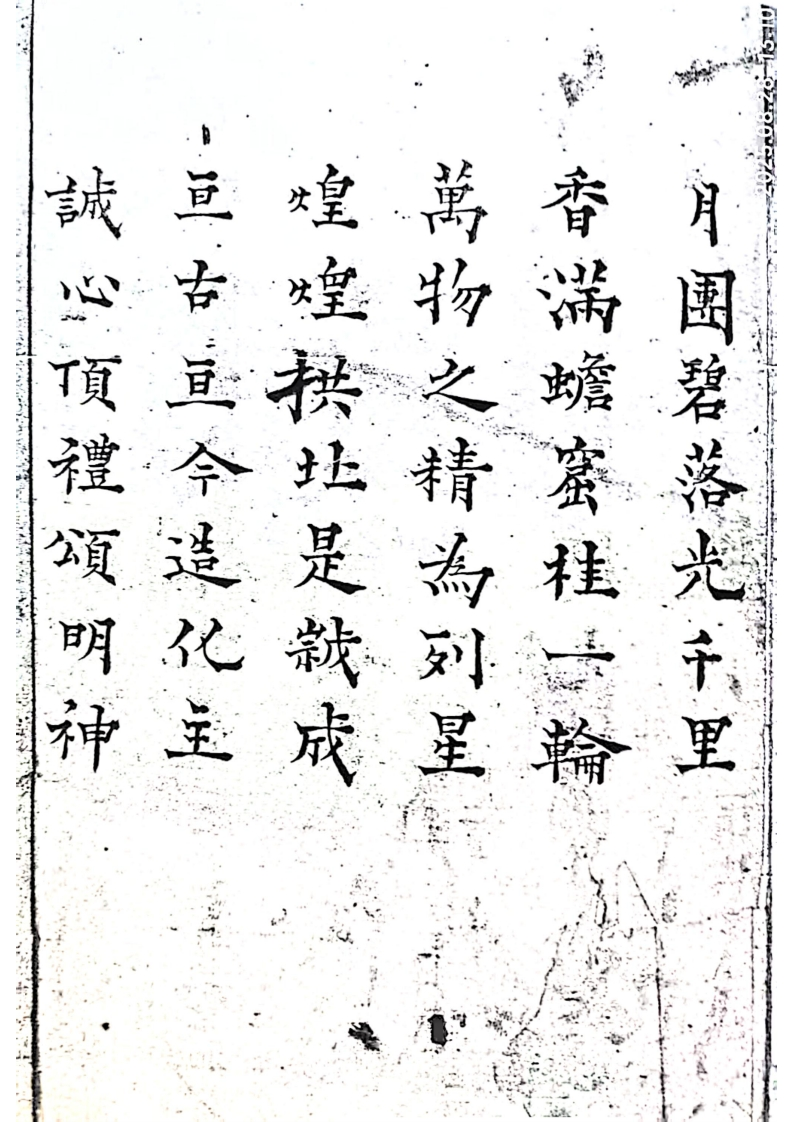 月團碧落光千里
香滿蟾窟桂一輪
萬物之精為列星
煌煌拱北是誠成
亘古亘今造化主
誠心頂禮頌明神